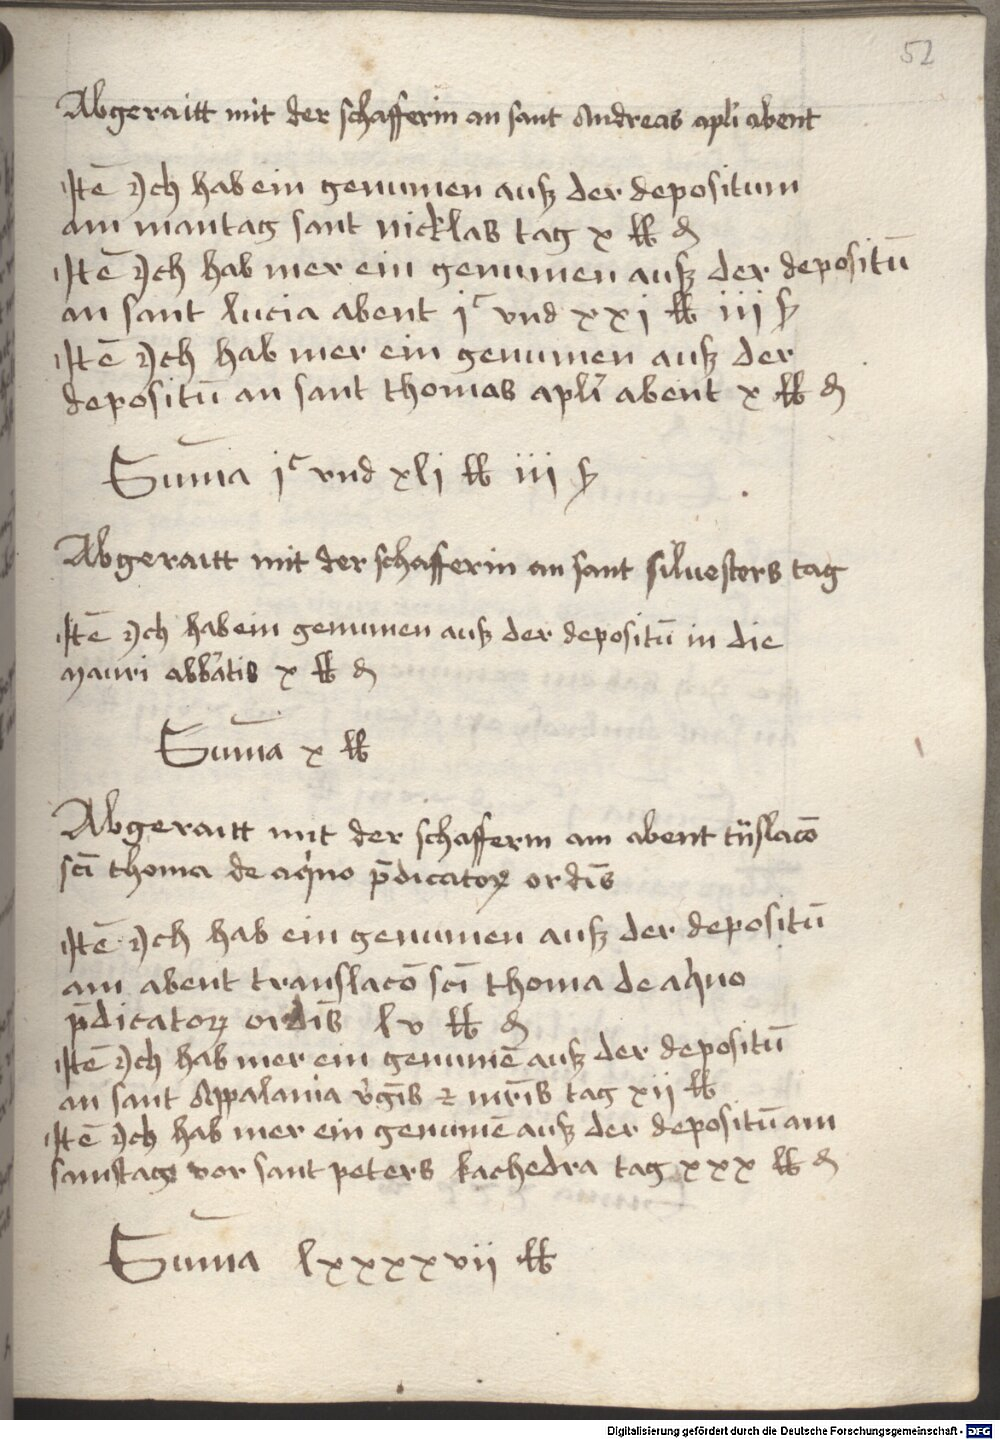 52
Abgeraitt mit der schafferin an sant Andreas apli abent
Itē Ich hab ein genumen ausz der depositum
am mantag sant nicklas tag x lb ₰
Itē Ich hab mer ein genumen ausz der depositū
an sant lucia abent jᶜ vnd xxj lb iij ß
Itē Ich hab mer ein genumen ausz der
depositū an sant thomas apli abent x lb ₰
Sum̄a jᶜ vnd xlj lb iij ß
Abgeraitt mit der schafferin an sant siluesters tag
Itē Ich hab ein genumen ausz der depositū in die
mauri abbatis x lb ₰
Sum̄a x lb
Abgeraitt mit der schafferin am abent tn̄slacō
sci thoma de aqino p̄dicatoꝝ ordīs
Itē Ich hab ein genumen ausz der depositū
am abent translacō sci thoma de aqino
p̄dicatoꝝ ordīs lv lb ₰
Itē Ich hab mer ein genumē ausz der depositū
an sant Appalania v̓gīs ⁊ mr̄is tag xij lb
Itē Ich hab mer ein genumē ausz der depositū am
samstag vor sant peters kachedra tag xxx lb ₰
Sum̄a lxxxxvij lb
Digitalisierung gefördert durch die Deutsche Forschungsgemeinschaft - DFG